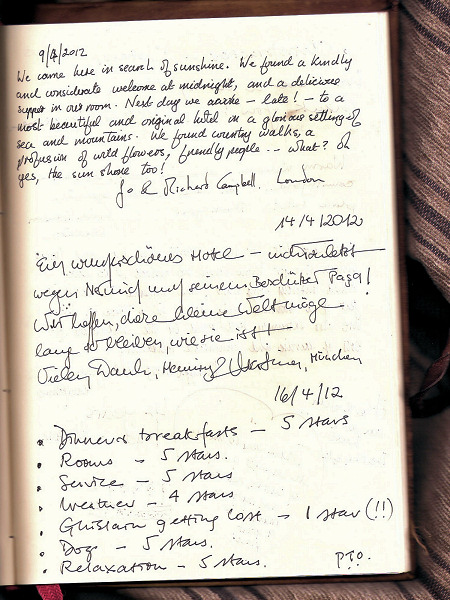 9/4/2012
We came here in search of sunshine. We found a kindly
and considerate welcome at midnight, and a delicious
supper in our room. Next day we awoke – late! – to a
most beautiful and original hotel in a glorious setting of
sea and mountains. We found country walks, a
profusion of wild flowers, friendly people -- what? Oh
yes, the sun shone too!
Jo & Richard Campbell. London
14/4/2012
Ein wunderschönes Hotel – nicht zuletzt
wegen und seinem Beschützer Pasa!
Wir hoffen, diese kleine Welt möge
lang so bleiben, wie sie ist!
Vielen Dank, Henning München
16/4/12
• Dinner & breakfasts – 5 stars
• Rooms – 5 stars.
• Service – 5 stars
• Weather – 4 stars
• Ghislain getting lost – 1 star (!!)
• Dogs – 5 stars.
• Relaxation – 5 stars.
P.T.O.